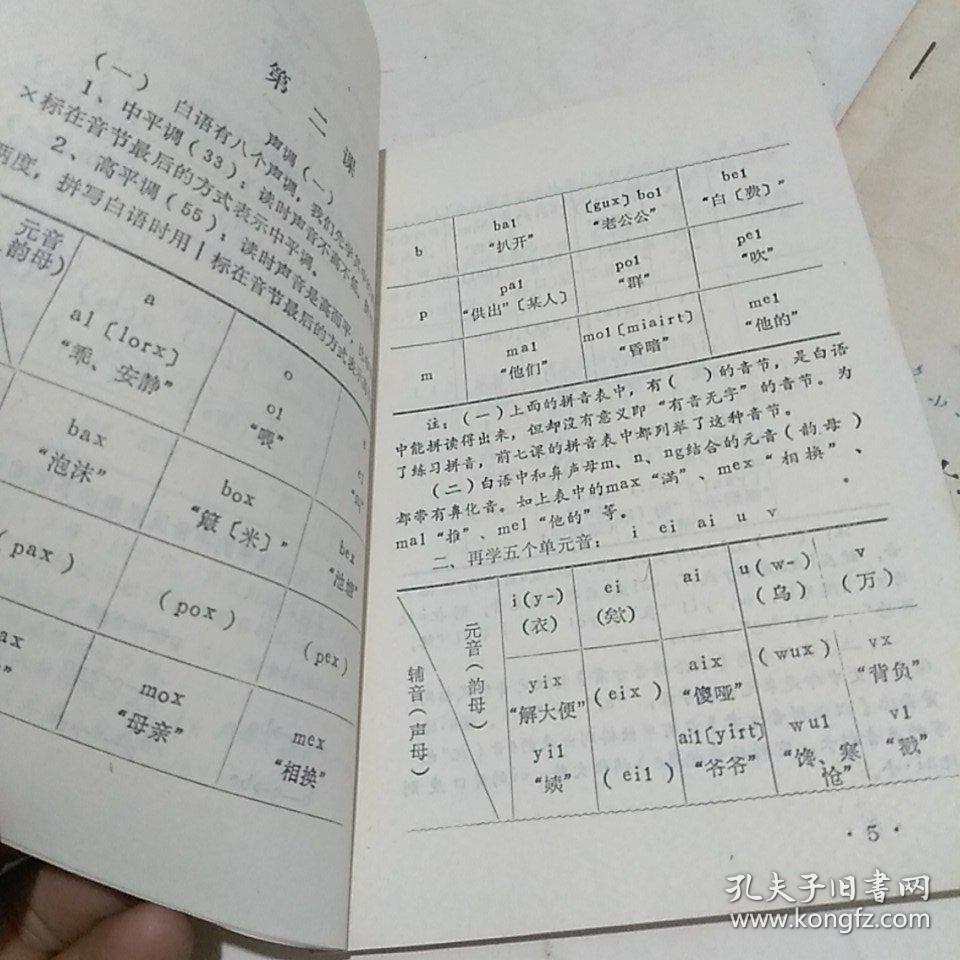 第二课
声调(一)
(一) 白语有八个声调,我们先学
1、中平调(33):读时声音不高不低,
×标在音节最后的方式表示中平调。
2、高平调(55):读时声音是高而平,
两度,拼写白语时用 | 标在音节最后的方式表
元音
韵母)
a
o
al〔lorx〕
“乖、安静”
ol
“喂”
bax
“泡沫”
box
“簸〔米〕”
bex
(pax)
(pox)
(pex)
mox
“母亲”
mex
“相换”
b
bal
“扒开”
〔gux〕bol
“老公公”
bel
“白〔费〕”
p
pal
“供出”〔某人〕
pol
“群”
pel
“吹”
m
mal
“他们”
mol〔miairt〕
“昏暗”
mel
“他的”
注:(一)上面的拼音表中,有( )的音节,是白语
中能拼读得出来,但却沒有意义即“有音无字”的音节。为
了练习拼音,前七课的拼音表中都列举了这种音节。
(二)白语中和鼻声母m、n、ng结合的元音(韵母)
都带有鼻化音。如上表中的max“满”、mex“相换”、
mal“推”、mel“他的”等。
二、再学五个单元音: i ei ai u v
元音(韵母)
辅音(声母)
i(y-)
(衣)
ei
(欸)
ai
u(w-)
(乌)
v
(万)
yix
“解大便”
(eix)
aix
“傻哑”
(wux)
vx
“背负”
yil
“姨”
(eil)
ail〔yirt〕
“爷爷”
wul
“馋、寒怆”
vl
“戳”
·5·
孔夫子旧书网
www.kongfz.com